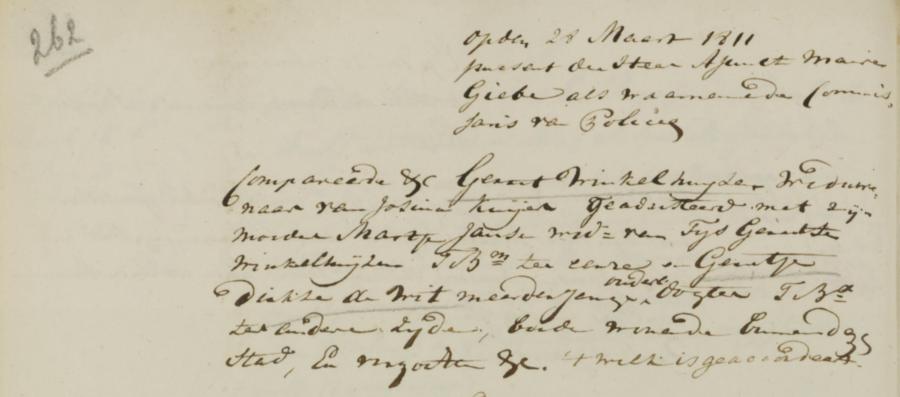 262
op den 28 Maart 1811
present den Heer Adjunct Maire
Giebe als waarnemende Commis-
saris van Policie
Compareerde &c Gerrit Winkelhuijzen Weduwe-
naar van Josina Kuijer geadsisteerd met zijn
moeder Martje Janse wedᵉ van Tijs Gerritse
Winkelhuijzen TBᵐ ter eenre en Geertje
Dirkse de Wit meerderjarige ouders dogter TBᵈ
ter andere Zijde, beide wonende binnen deze
Stad, En verzogten &c. 't welk is geaccordeert.